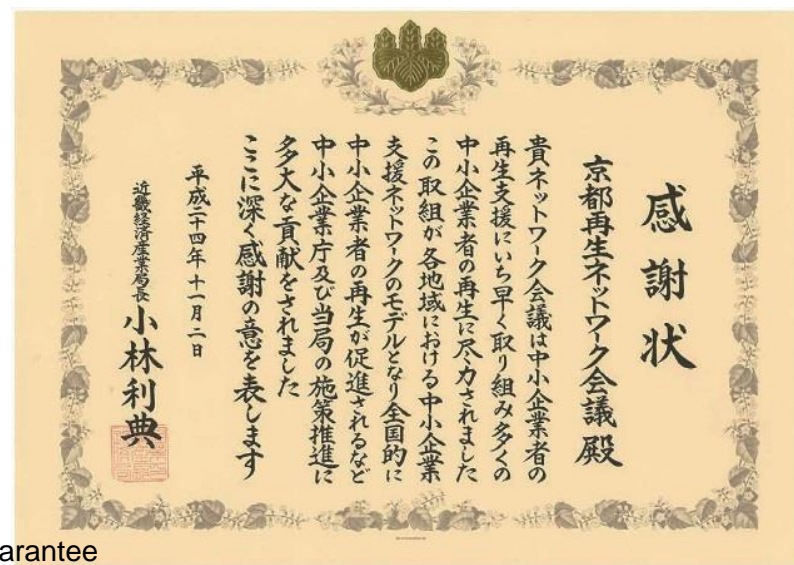 感謝状
京都再生ネットワーク会議殿
貴ネットワーク会議は中小企業者の
再生支援にいち早く取り組み多くの
中小企業者の再生に尽力されました
この取組が各地域における中小企業
支援ネットワークのモデルとなり全国的に
中小企業者の再生が促進されるなど
中小企業庁及び当局の施策推進に
多大な貢献をされました
ここに深く感謝の意を表します
平成二十四年十一月二日
近畿経済産業局長 小林利典
arantee